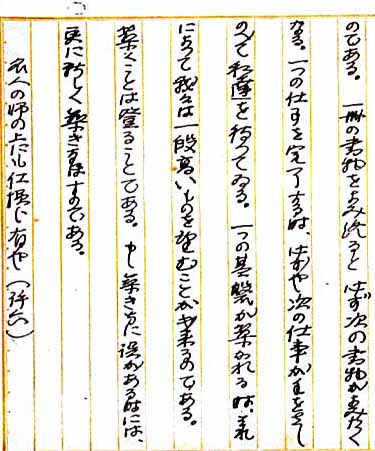 のである。一冊の書物をよみ終ると必ず次の書物がよみたく
なる。一つの仕事を完了する時、はや次の仕事が手を差し
のべて私達を待つてゐる。一つの基礎が築かれる時、それ
によつて我々は一段高いものを望むことが出来るのである。
築くことは登ることである。もし築き方に誤がある時には、
更に新しく築き直すのである。
衣人の師のたしに仕損じ有や（許六）